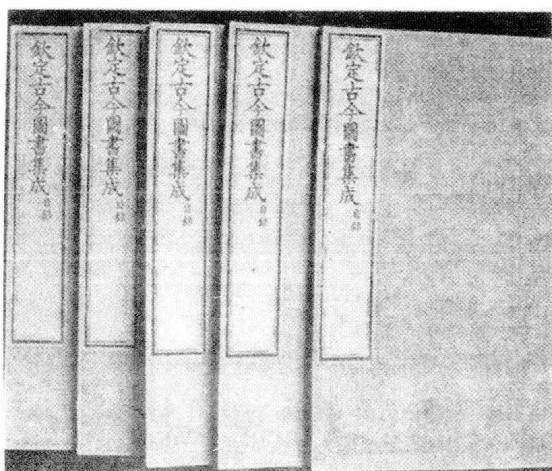 欽定古今圖書集成 目錄
欽定古今圖書集成 目錄
欽定古今圖書集成 目錄
欽定古今圖書集成 目錄
欽定古今圖書集成 目錄